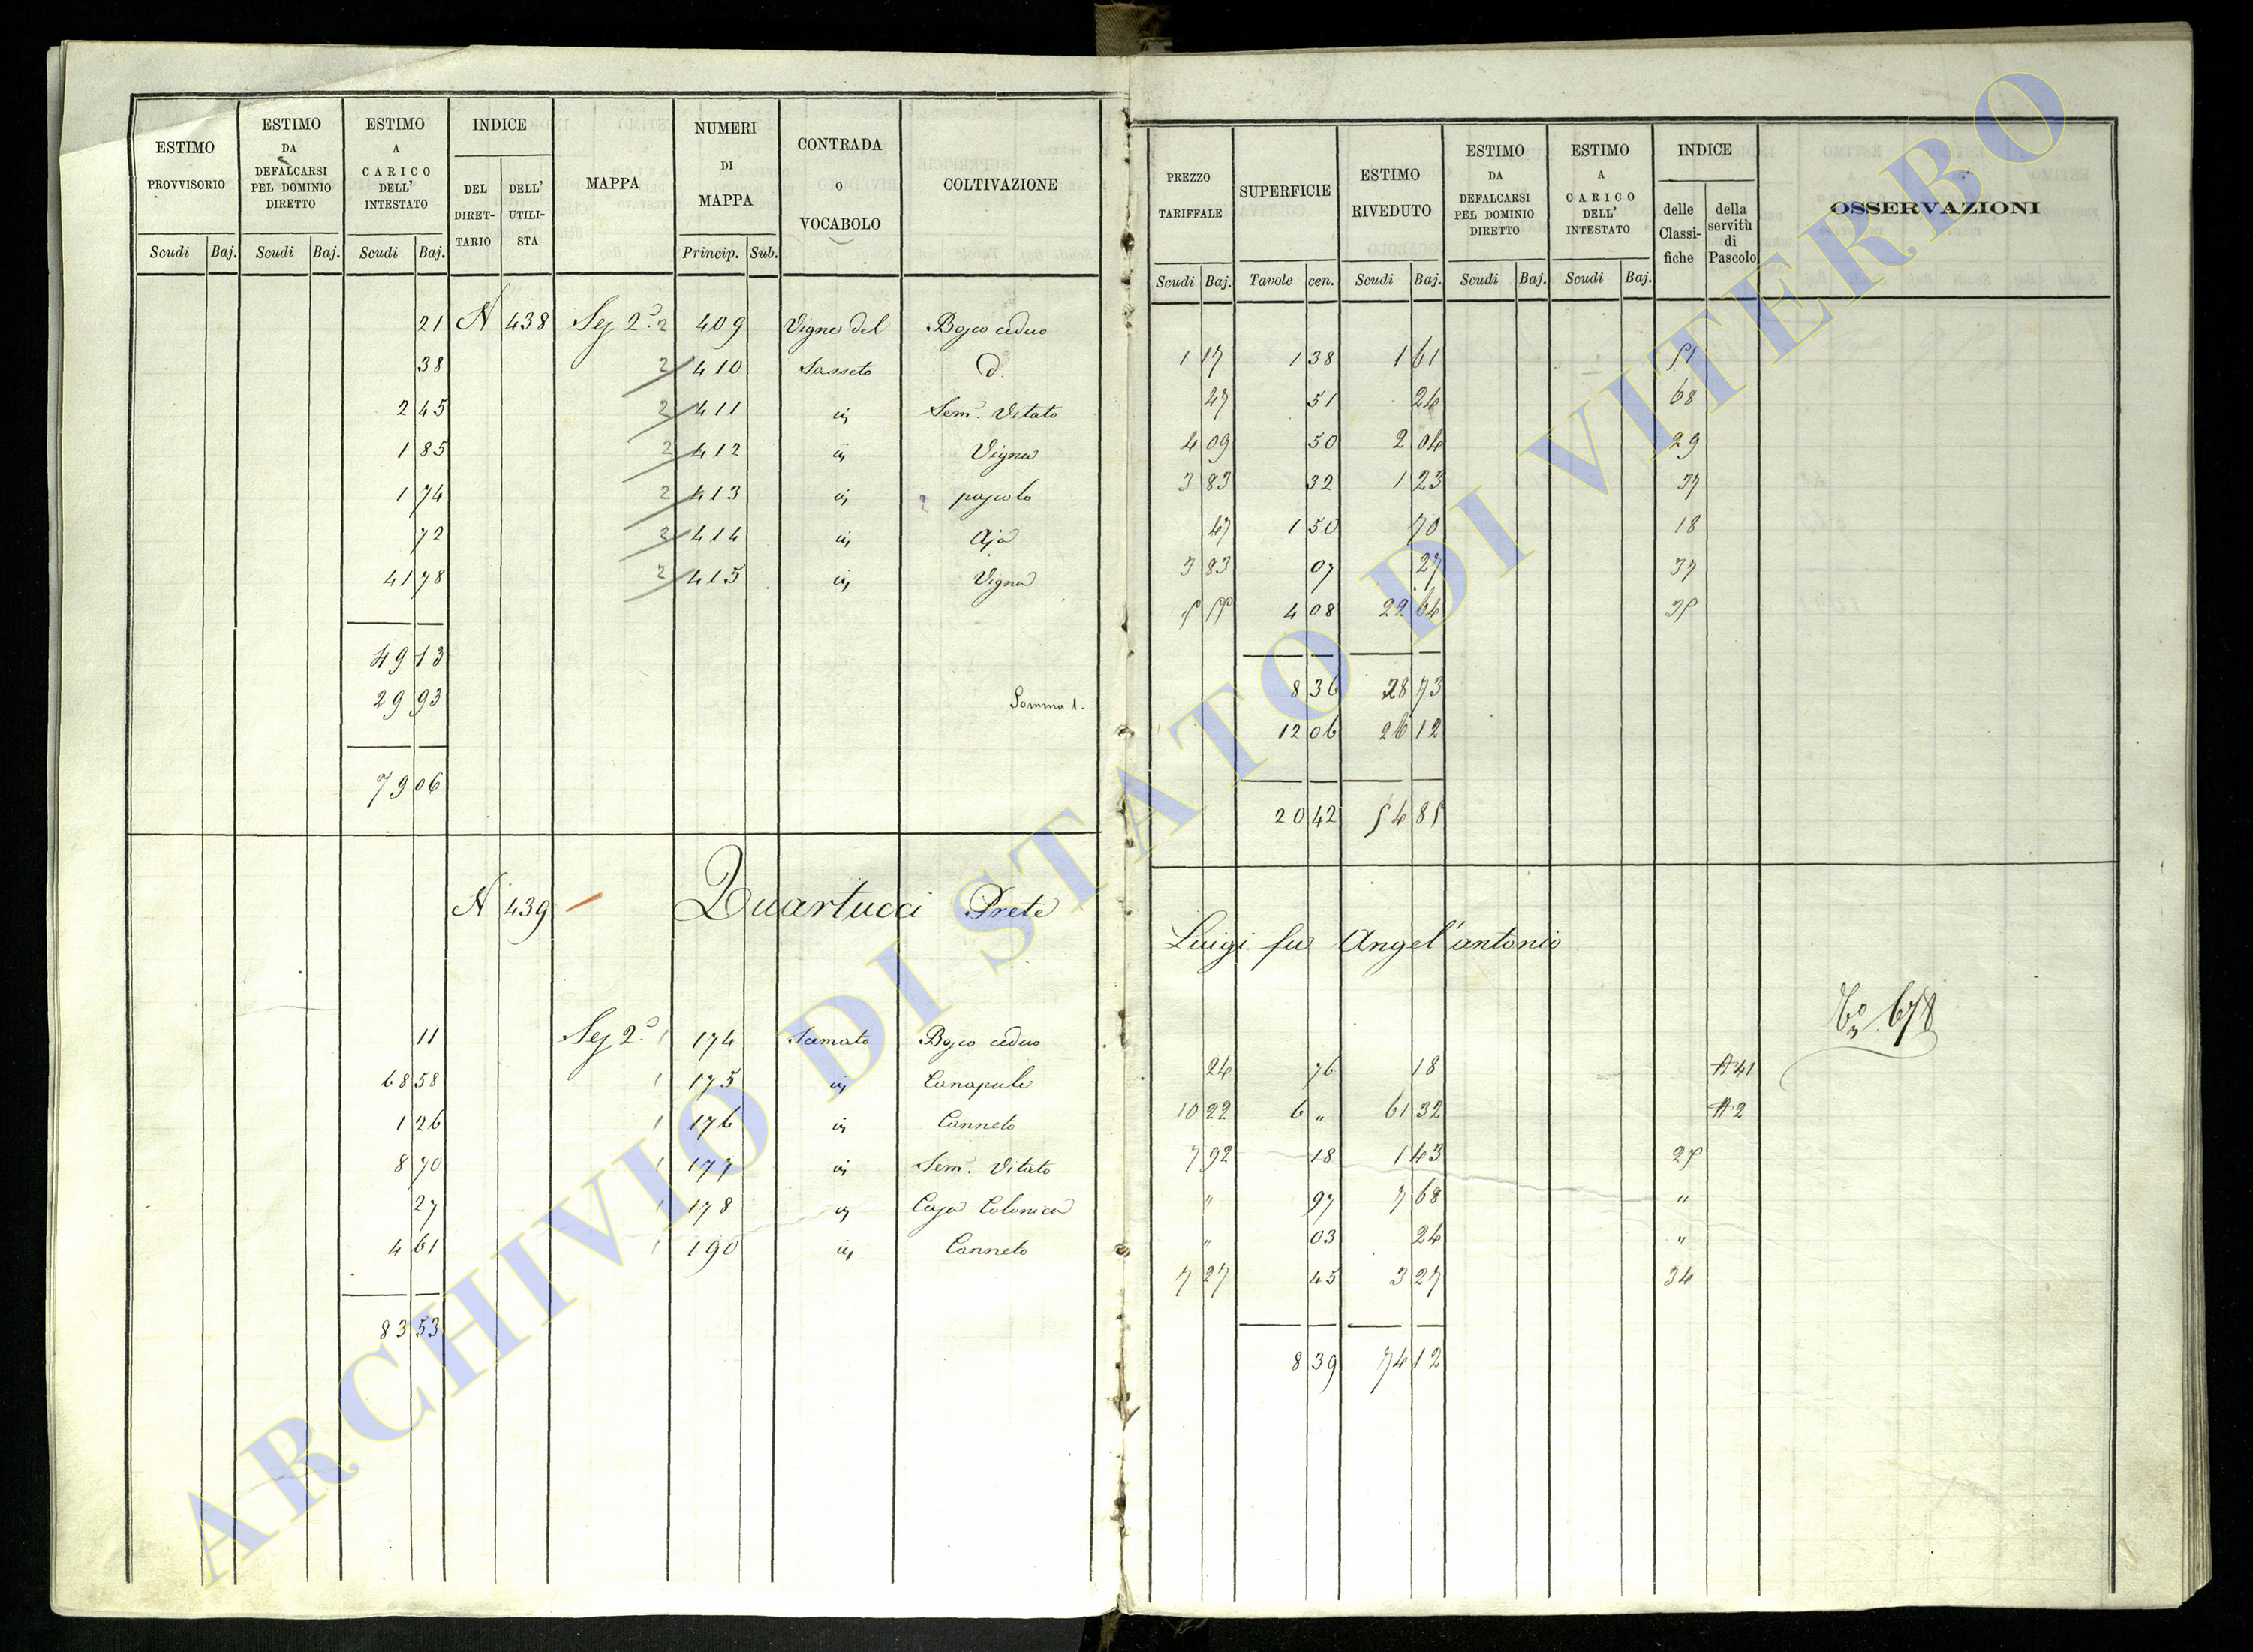 ESTIMO PROVVISORIO
ESTIMO DA DEFALCARSI PEL DOMINIO DIRETTO
ESTIMO A CARICO DELL' INTESTATO
INDICE
DEL DIRET-TARIO
DELL' UTILI-STA
MAPPA
NUMERI DI MAPPA
CONTRADA O VOCABOLO
COLTIVAZIONE
Scudi Baj. Scudi Baj. Scudi Baj. Princip. Sub.
21 N 438 Sez 2ª 2 409 Vigne del Bosco ceduo
38 2 410 Sasseto d.
2 45 2 411 in Semº. Vitato
1 85 2 412 in Vigna
1 74 2 413 in pascolo
72 2 414 in Aja
41 78 2 415 in Vigna
49 13
29 93 Somma 1.
79 06
N 439 Quartucci Prete
11 Sez 2ª 1 174 Bosco ceduo
68 58 1 175 in Canapule
1 26 1 176 in Canneto
8 70 1 177 in Semº. Vitato
27 1 178 in Casa Colonica
4 61 1 190 in Canneto
83 53
PREZZO TARIFFALE
SUPERFICIE
ESTIMO RIVEDUTO
ESTIMO DA DEFALCARSI PEL DOMINIO DIRETTO
ESTIMO A CARICO DELL' INTESTATO
INDICE
delle Classi-fiche
della servitù di Pascolo
OSSERVAZIONI
Scudi Baj. Tavole cen. Scudi Baj. Scudi Baj. Scudi Baj.
1 17 1 38 1 61 51
47 51 24 68
4 09 50 2 04 29
3 83 32 1 23 37
47 1 50 70 18
3 83 07 27 37
5 55 4 08 22 64 35
8 36 28 73
12 06 26 12
20 42 54 85
Luigi fu Angel'antonio
678
24 76 18 A 41
10 22 6 " 61 32 A 2
7 92 18 1 43 25
" 97 7 68 "
" 03 24 "
7 27 45 3 27 34
8 39 74 12
ARCHIVIO DI STATO DI VITERBO